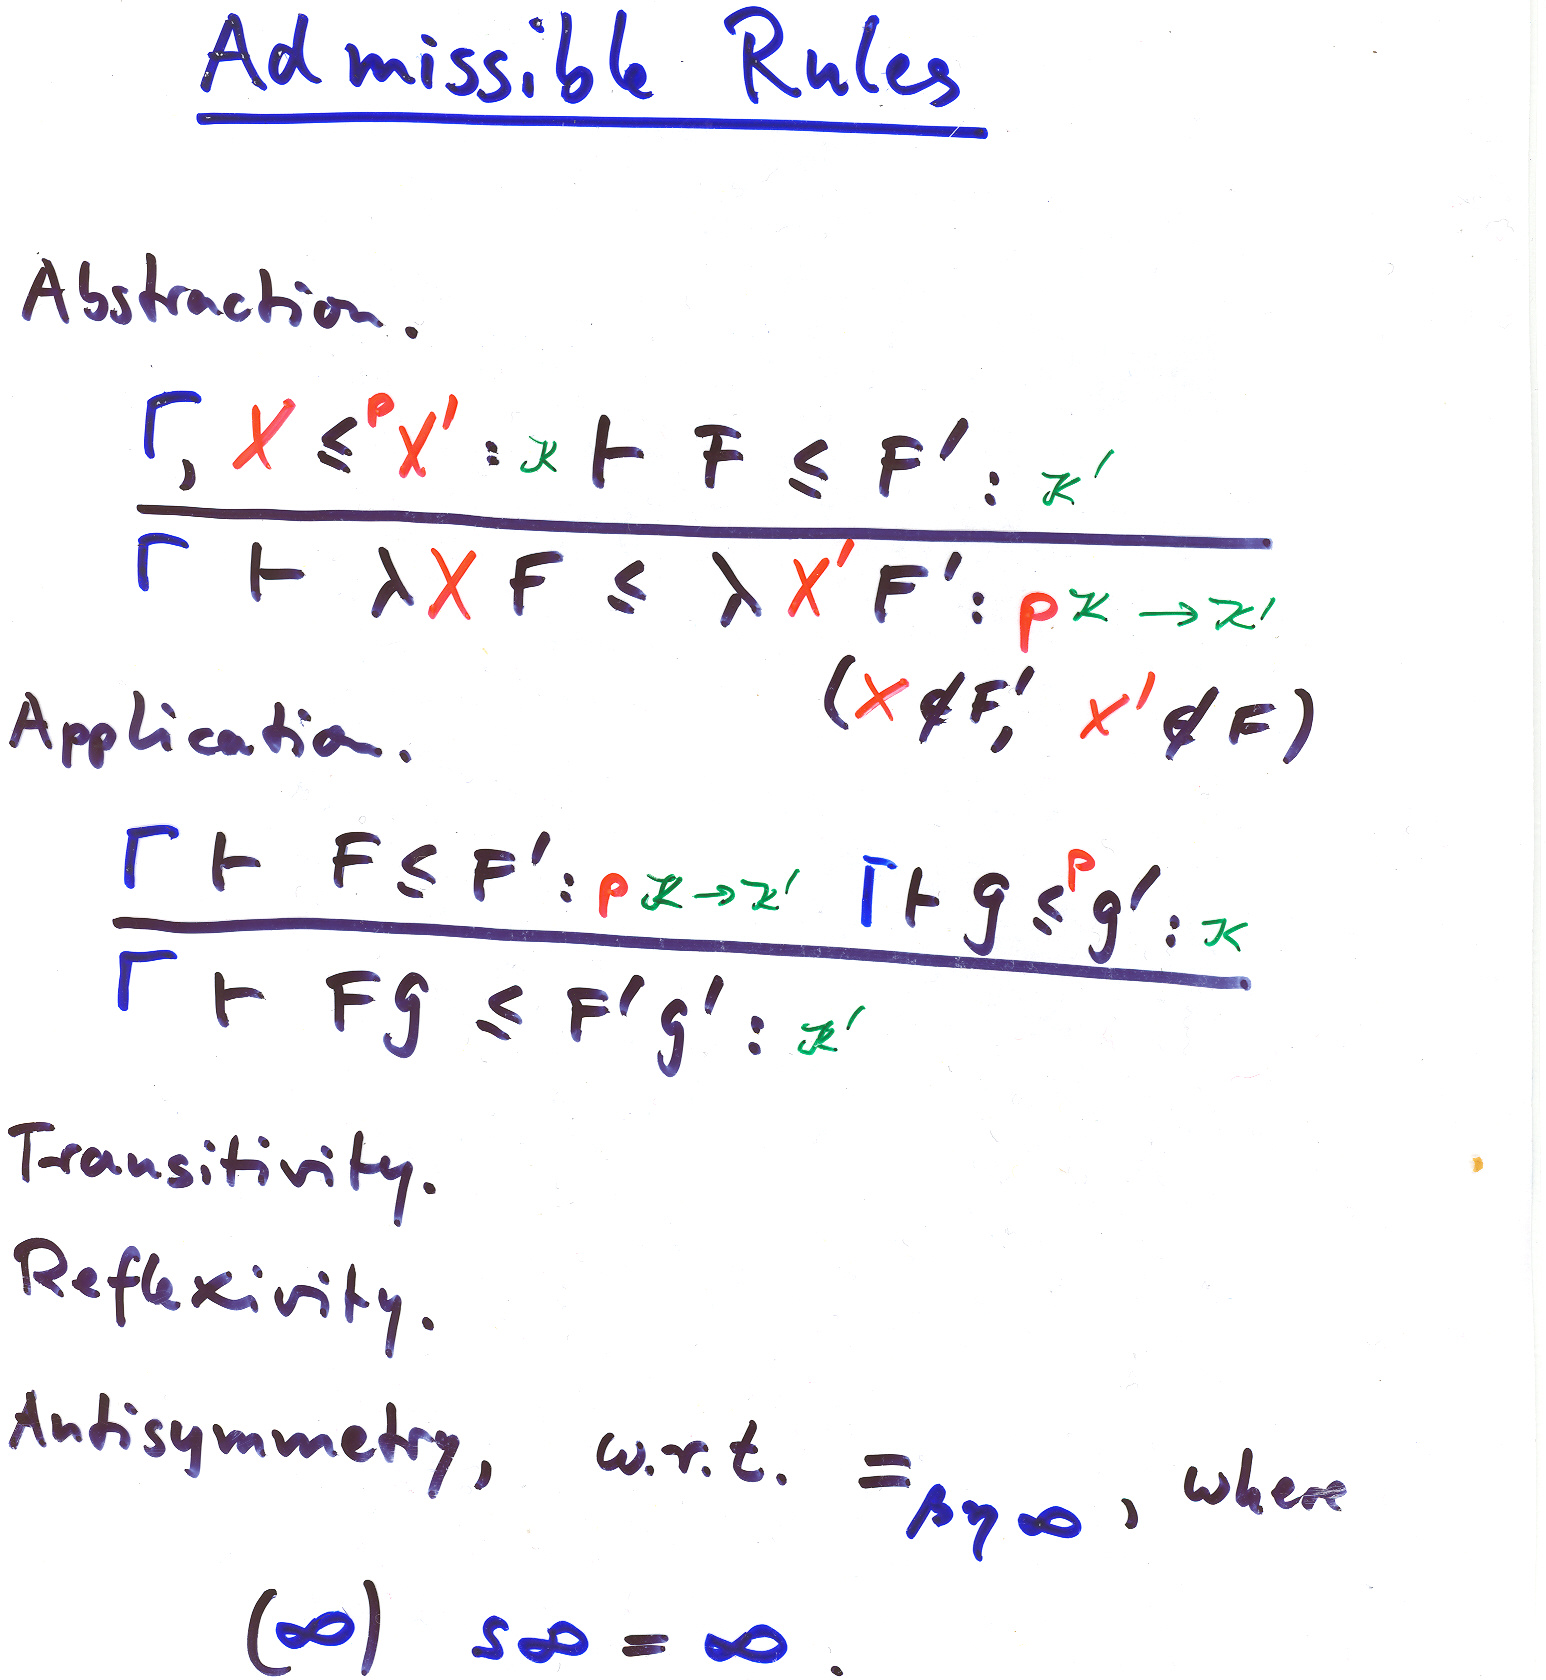 Admissible Rules
Abstraction.
Γ, X ≤ᵖ X' : κ ⊢ F ≤ F' : κ'
Γ ⊢ λX F ≤ λX' F' : pκ → κ'
(X ∉ F', X' ∉ F)
Application.
Γ ⊢ F ≤ F' : pκ → κ' Γ ⊢ G ≤ᵖ G' : κ
Γ ⊢ F G ≤ F' G' : κ'
Transitivity.
Reflexivity.
Antisymmetry, w.r.t. =βη∞, where
(∞) s∞ = ∞.